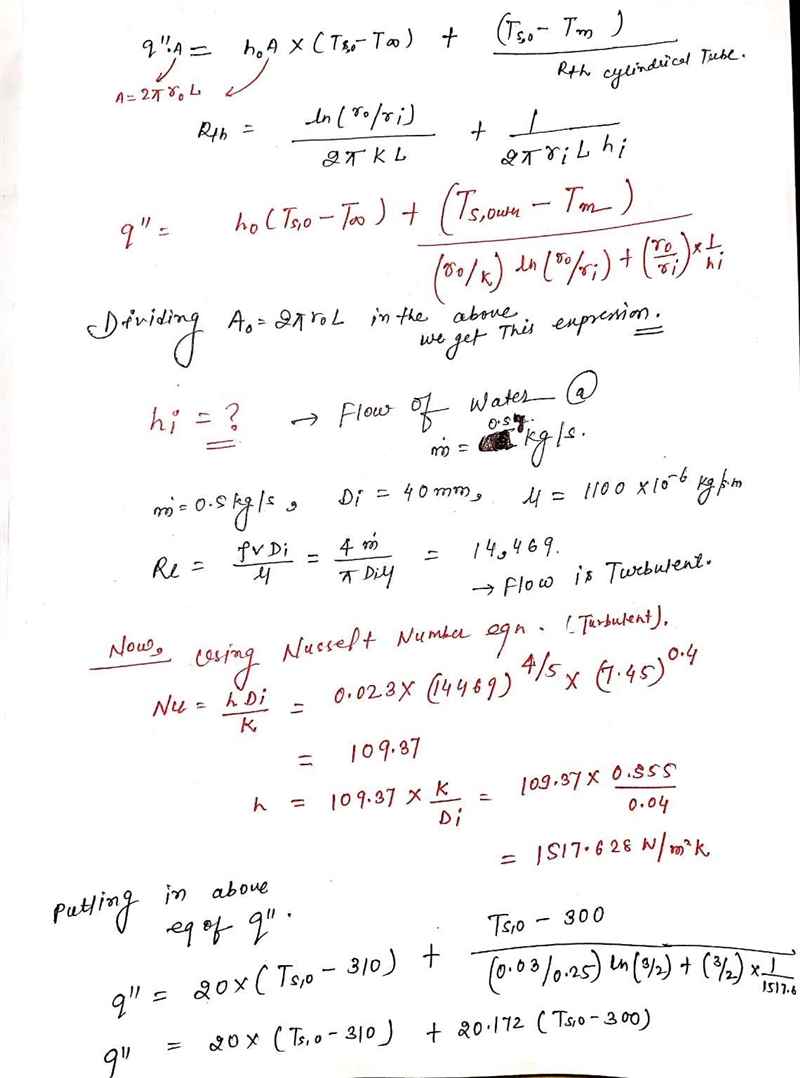 q".A = h₀A × (Ts,o - T∞) + (Ts,o - Tm) / Rth cylindrical Tube.
A = 2π r₀ L
Rth = ln(r₀/ri) / 2πKL + 1 / 2π ri L hi
q" = h₀(Ts,o - T∞) + (Ts,outer - Tm) / (r₀/k) ln(r₀/ri) + (r₀/ri) × 1/hi
Dividing A₀ = 2π r₀ L in the above
we get This expression.
hi = ? → Flow of Water @
ṁ = 0.5 kg/s.
ṁ = 0.5 kg/s, Di = 40mm, μ = 1100 × 10⁻⁶ kg/s.m
Re = ρVDi / μ = 4ṁ / πDiμ = 14,469.
→ Flow is Turbulent.
Now, Using Nusselt Number eqn. (Turbulent).
Nu = hDi / K = 0.023 × (14469)^4/5 × (7.45)^0.4
= 109.37
h = 109.37 × K / Di = 109.37 × 0.555 / 0.04
= 1517.628 W/m²k
Putting in above
eq of q".
q" = 20 × (Ts,o - 310) + Ts,o - 300 / (0.03/0.25) ln(3/2) + (3/2) × 1/1517.6
q" = 20 × (Ts,o - 310) + 20.172 (Ts,o - 300)